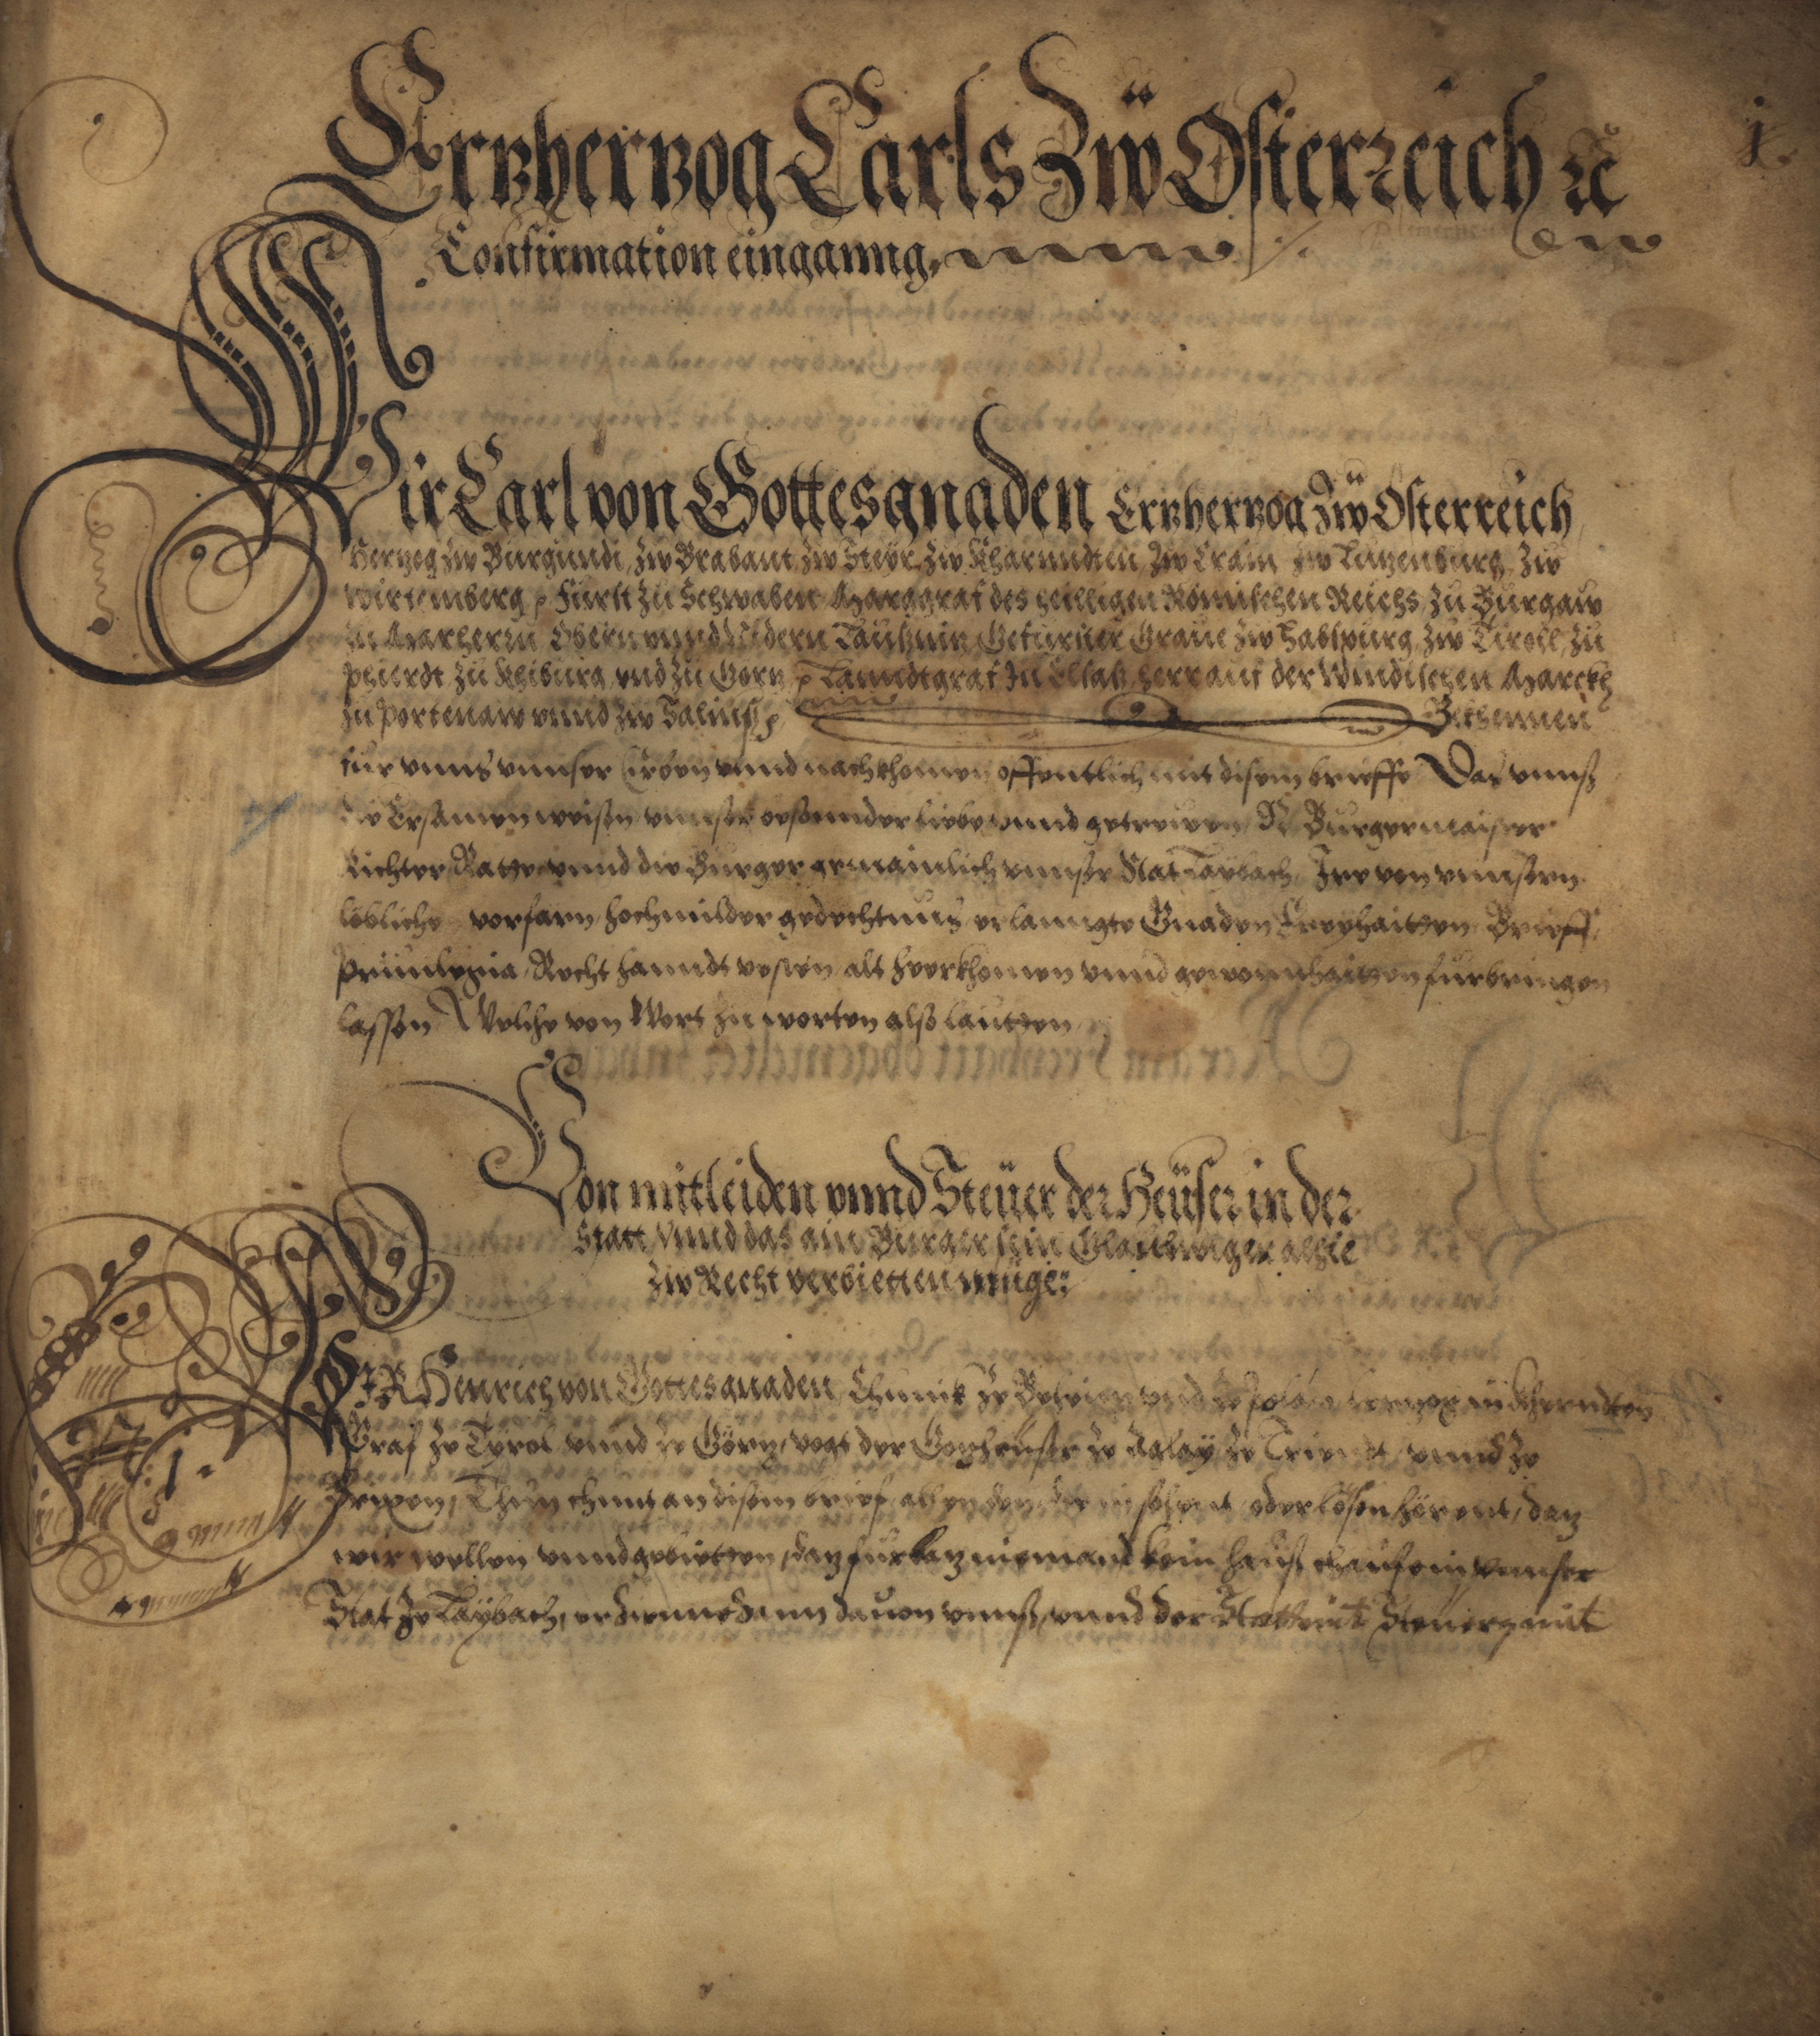 Ertzhertzog Carls Zw Osterreich ꝛc
Confirmation einganng,
1.
Wir Carl von Gottes gnaden Ertzhertzog Zw Osterreich
Hertzog Zw Burgundi, Zw Brabant, Zw Steyr, Zw Kharnndten, Zw Crain, Zw Lutzenburg, Zw
Wirtemberg, Fürst Zu Schwaben, Marggraf des heilligen Römischen Reichs, Zu Burgaw
Zu Marhern, Obern vnnd Nidern Laußnitz, Gefürster Graue Zw Habspurg, Zw Tiroll, Zu
Phierdt, Zu Khiburg, vnd Zu Görtz, Lanndtgraf In Elsaß, herr auf der Windischen Marckh
Zu Portenaw vnnd Zw Salins, Bekhennen
für vnns vnnser Erben vnnd nachkhomen offentlich mit disem brieffe Das vnnß
die Ersamen weisen vnnser besonnder liebe vnnd getrewen N. Burgermaister
Richter Rate vnnd die Burger gemainlich vnnser Stat Laybach, Jre von vnnsern
löbliche vorfarn hochmilder gedechtnus erlanngte Gnaden Freyhaitten Brieff,
Priuilegia, Recht hanndtvesten alt herkhomen vnnd gewonnhaitten furbringen
lassen Welche von Wort zu worten alß lautten
Von mitleiden vnnd Steuer der Heüser in der
Statt, Vnnd das ain Burger sein Glaubiger alhie
Zw Recht verbietten müge:
WIR Heinrich von Gottes gnaden, Chunik Ze Beheim vnd ze Polan hertzog in Khernndten
Graf Ze Tyrol, vnnd ze Görtz, vogt der Gotzheüser ze Aglay, ze Trient, vnnd Ze
Brixen, Thun chunt an disem brief, allen den, die in sehent, oder lesen hörent, daz
wir wellen vnnd gebietten, daz furbaz niemant kein hauß chauf in vnnser
Stat Ze Laybach, er dienne dann dauon vnnß, vnnd der Stat mit Steuer, mit